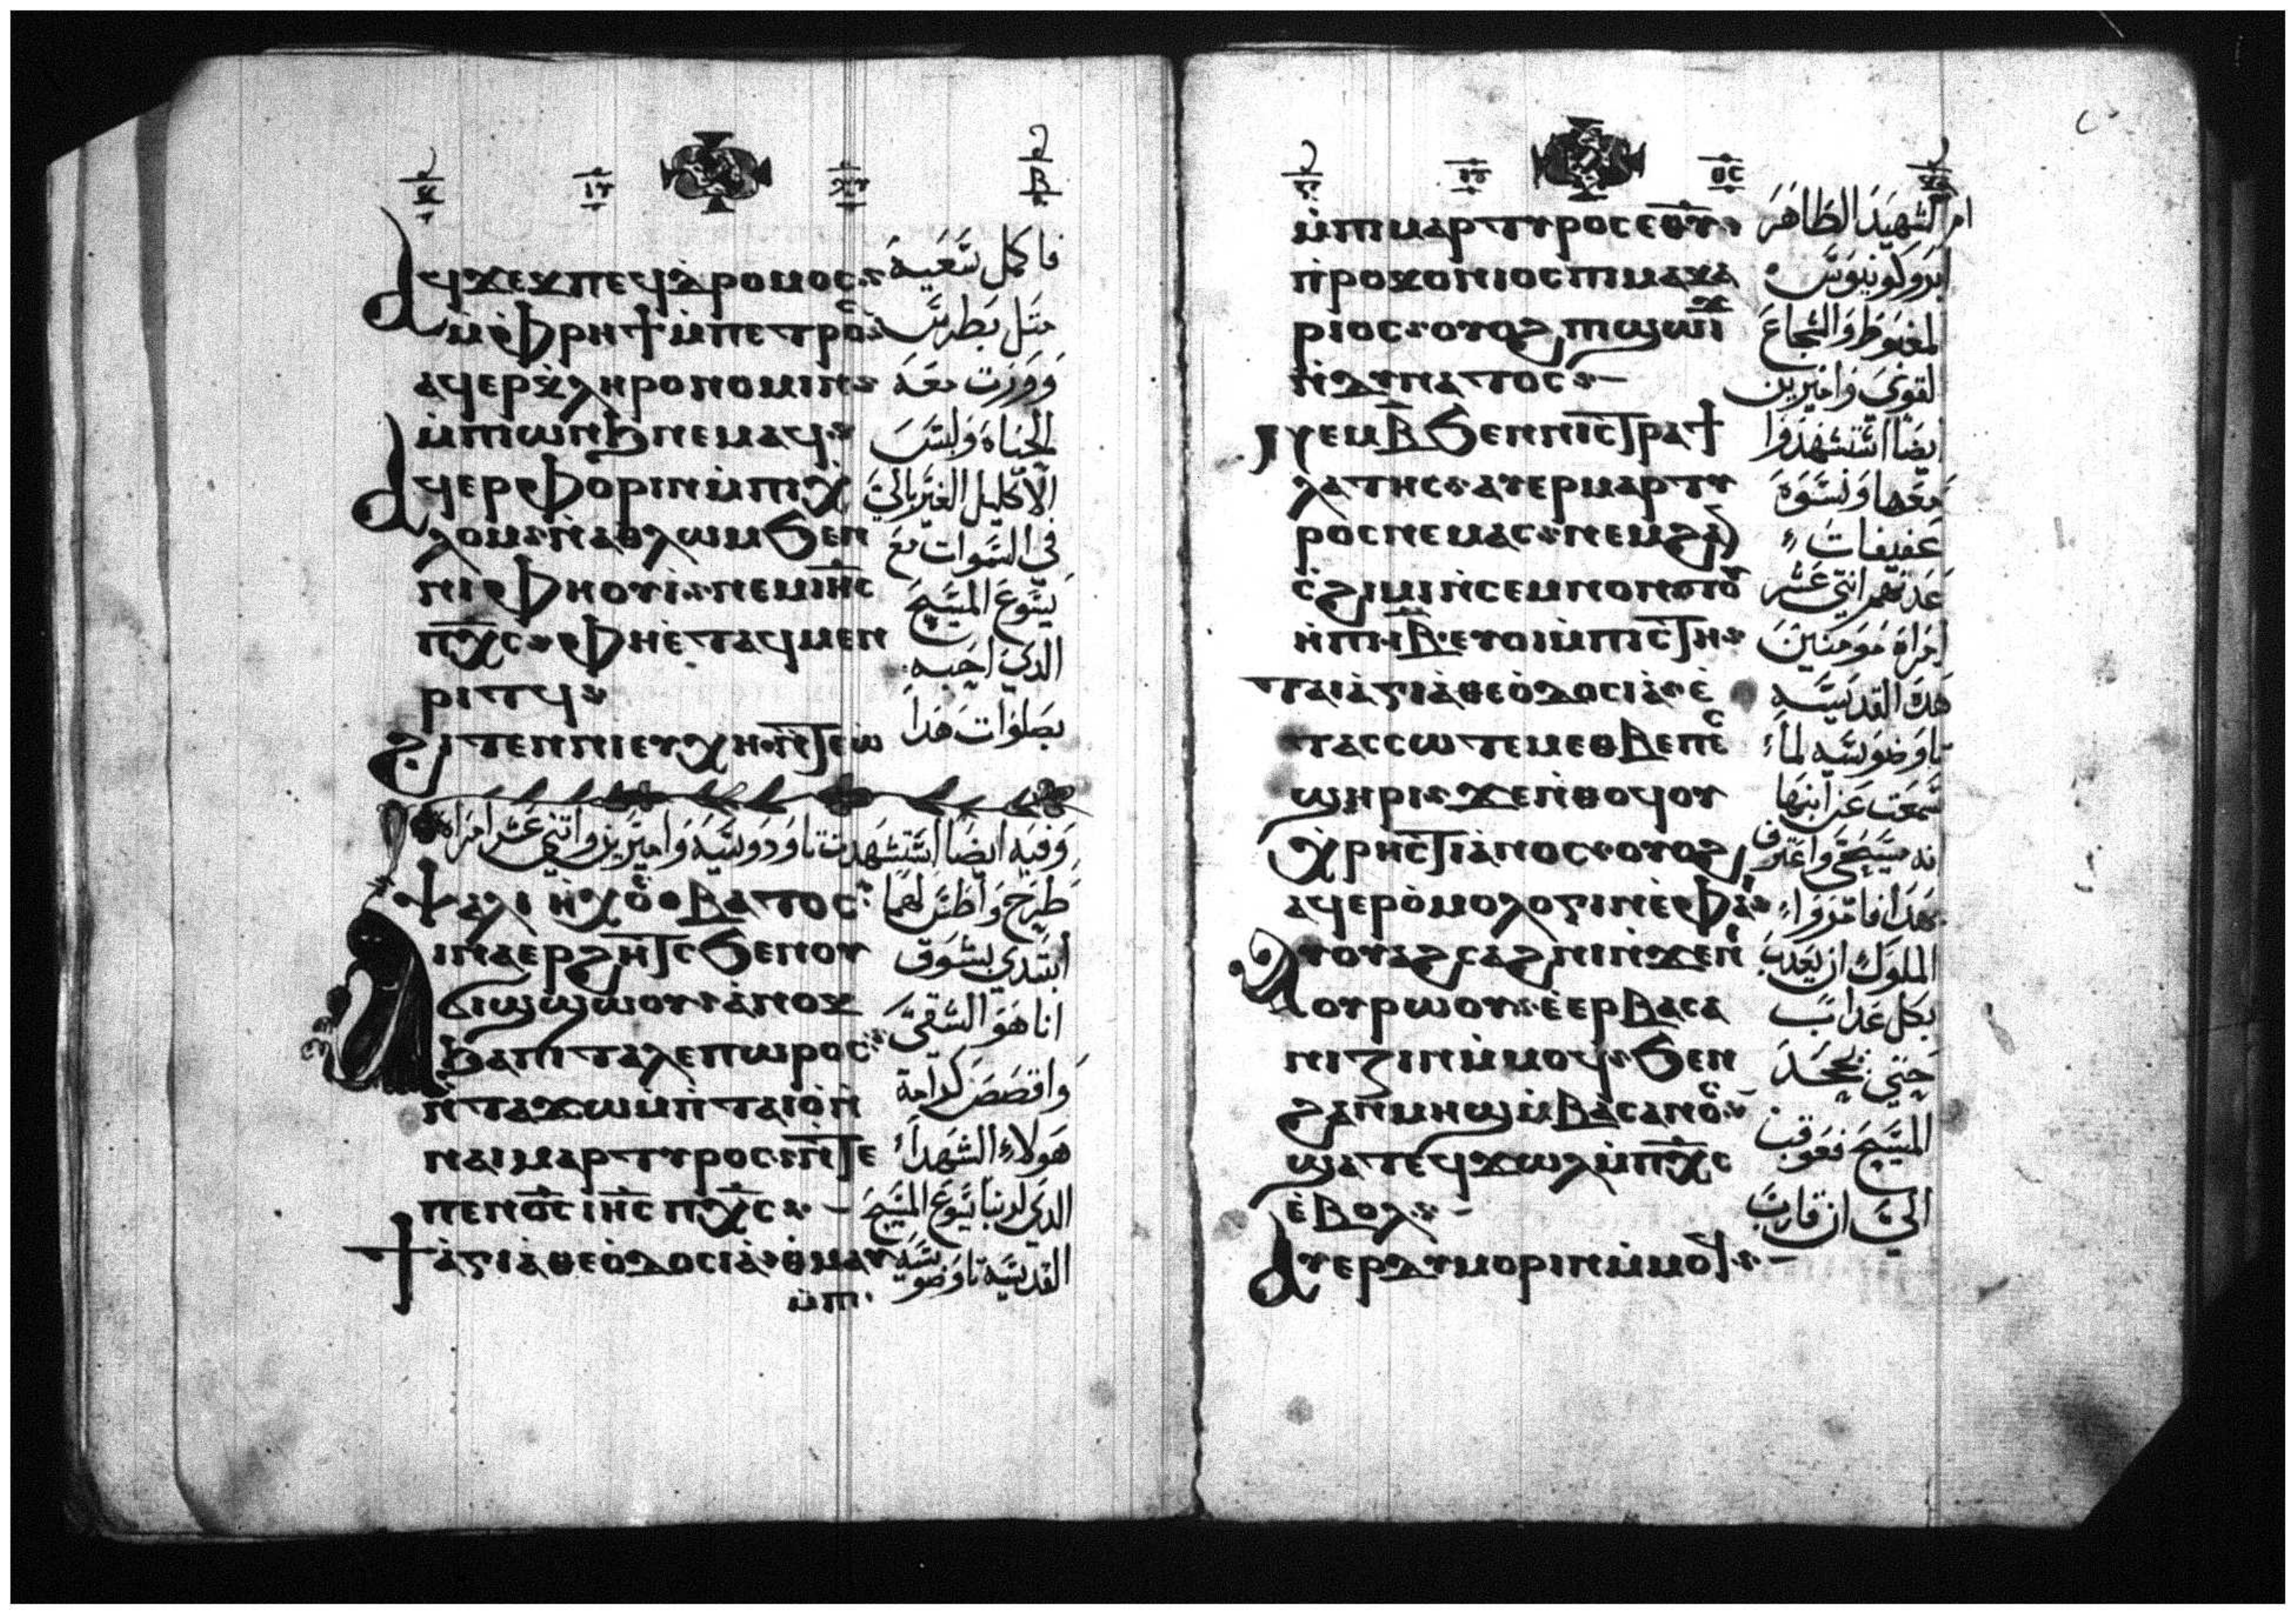 ⲁϥϫⲉⲕⲡⲉϥⲇⲣⲟⲙⲟⲥ
ⲙ̀ⲫⲣⲏϯ ⲙ̀ⲡⲉⲧⲣⲟⲥ
ⲁϥⲉⲣⲕ̀ⲗⲏⲣⲟⲛⲟⲙⲓⲛ
ⲙ̀ⲡⲓⲱⲛϧ ⲛⲉⲙⲁϥ
ⲁϥⲉⲣⲫⲟⲣⲓⲛ ⲙ̀ⲡⲓⲭ
ⲗⲟⲙ ⲛ̀ⲁⲑⲗⲱⲙ ϧⲉⲛ
ⲛⲓⲫⲏⲟⲩⲓ ⲛⲉⲙ ⲓⲏⲥ
ⲡⲭⲥ ⲫⲏⲉ̀ⲧⲁϥⲙⲉⲛ
ⲣⲓⲧϥ
ϩⲓⲧⲉⲛ ⲛⲓⲉⲩⲭⲏ ⲛ̀ⲧⲉ ⲱ
فاكمل سَعيه
متل بطرس
وورت معه
الحياة ولبس
الاكليل الغير بالي
في السموات مع
يسوع المسيح
الدي احبه
بصلوات هدا
وفيه ايضا استشهدت تاودوسيه واميرين واتني عشر امراه
ⲧⲁⲗⲓ ⲛ̀ⲭⲟⲃⲁⲧⲟⲥ
ⲓⲛⲁⲉⲣϩⲏⲧⲥ ϧⲉⲛ ⲟⲩ
ϭⲓϣϣⲱⲟⲩ ⲁ̀ⲛⲟⲕ
ϧⲁⲡⲓⲧⲁⲗⲉⲡⲱⲣⲟⲥ
ⲛ̀ⲧⲁⲥⲱ ⲙ̀ⲡ̀ⲧⲁⲓⲟ̀ ⲛ̀
ⲛⲁⲓⲙⲁⲣⲧⲩⲣⲟⲥ ⲛ̀ⲧⲉ
ⲡⲉⲛⲟ̅ⲥ̅ ⲓⲏ̅ⲥ̅ ⲡⲭ̅ⲥ̅
ϯⲁ̀ⲅⲓⲁ̀ ⲑⲉⲟ̀ⲇⲟⲥⲓⲁ̀ ⲑ̀ⲙⲁⲩ
ⲙ̀ⲡⲓ
ابتدي بشوق
انا هو الشقي
هولاء الشهداء
الدي لربنا يسوع المسيح
القديسة تاوضوسيه
ⲙ̀ⲡⲓⲙⲁⲣⲧⲩⲣⲟⲥ ⲉⲑⲩ
ⲡ̀ⲣⲟⲕⲟⲛⲓⲟⲥ ⲡⲓⲙⲁⲕⲁ
ⲣⲓⲟⲥ ⲟⲩⲟϩ ⲡⲓϣⲱⲓϫ
ⲛ̀ⲇⲩⲛⲁⲧⲟⲥ
ⲛⲉⲙ ⲃ̅ ϧⲉⲛ ⲛⲓⲥⲧⲣⲁϯ
ⲗⲁⲧⲏⲥ ⲁⲩⲉⲣⲙⲁⲣⲧⲩ
ⲣⲟⲥ ⲛⲉⲙⲁⲥ ⲛⲉⲙ ϩⲁⲛ
ⲥ̀ϩⲓⲙⲓ ⲛ̀ⲥⲉⲙⲛⲟⲛ ⲟⲩⲟ
ⲙ̀ⲡⲓ ⲓⲃ̅ ⲉⲩⲟⲓ ⲙ̀ⲡⲓⲥⲧⲏ
ⲧⲁⲓⲁ̀ⲅⲓⲁ̀ ⲑⲉⲟ̀ⲇⲟⲥⲓⲁ̀ ⲉ̀
ⲧⲁⲥⲥⲱⲧⲉⲙ ⲉⲑⲃⲉ ⲡⲉⲥ
ϣⲏⲣⲓ ϫⲉ ⲛ̀ⲑⲟϥ ⲟⲩ
ⲭ̀ⲣⲏⲥⲧⲓⲁ̀ⲛⲟⲥ ⲟⲩⲟϩ
ⲁϥⲉⲣⲟ̀ⲙⲟⲗⲟⲅⲓⲛ ⲉ̀ⲫⲁⲓ
ⲁⲩⲟⲩⲁϩⲥⲁϩⲛⲓ ⲛ̀ϫⲉ ⲛⲓ
ⲟⲩⲣⲱⲟⲩ ⲉ̀ⲉⲣⲃⲁⲥⲁ
ⲛⲓⲍⲓⲛ ⲙ̀ⲙⲟϥ ϧⲉⲛ
ϩⲁⲛⲙⲏϣ ⲙ̀ⲃⲁⲥⲁⲛⲟⲥ
ϣⲁⲧⲉϥⲭⲱⲗ ⲙ̀ⲡⲭ̅ⲥ̅
ⲉ̀ⲃⲟⲗ
ⲁⲩⲉⲣⲇⲩⲙⲟⲣⲓⲛ ⲙ̀ⲙⲟϥ
ام الشهيد الطاهر
ابروكونيوس
المغبوط والشجاع
القوي واميرين
ايضا استشهدوا
معها ونسوة
عفيفات
عدتهم اتني عشر
امراة مومنين
هده القديسه
تاوضوسيه لما
سمعت عن ابنها
انه مسيحي واعترف
بهدا فامروا
الملوك ان يعدب
بكل عداب
حتي يجحد
المسيح فعوقب
الي ان قارب